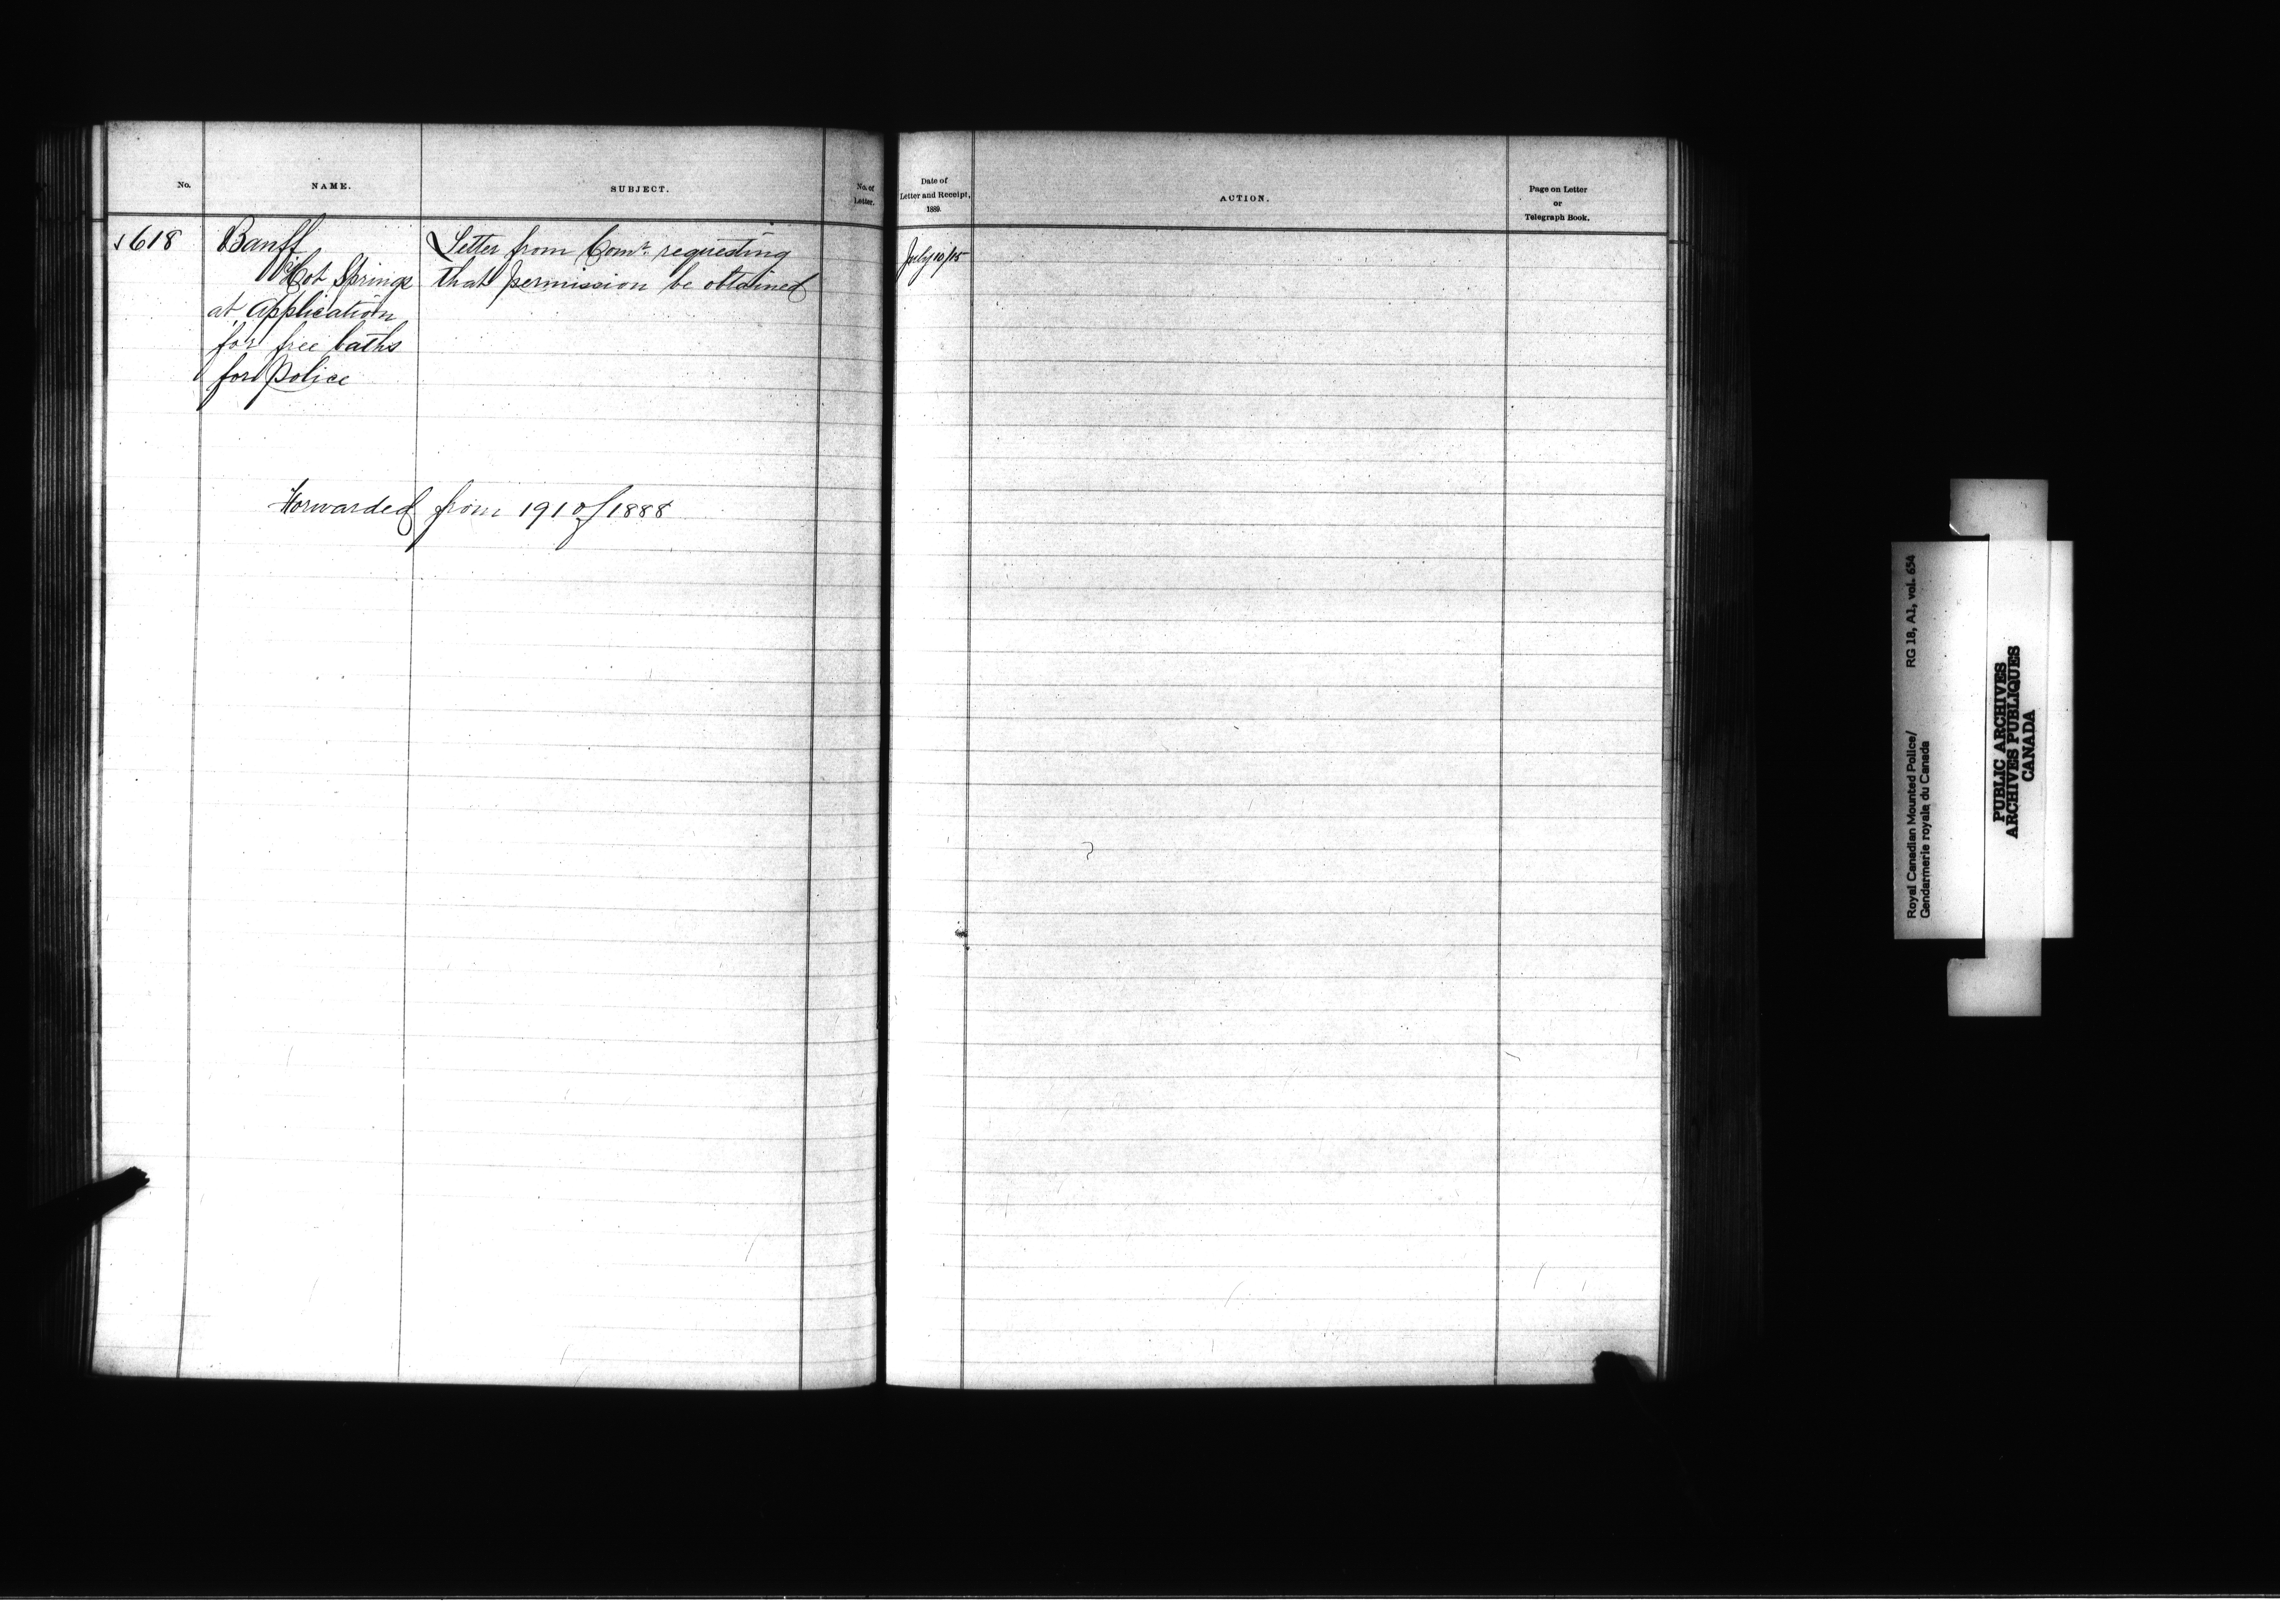 No.
NAME.
SUBJECT.
No. of
Letter.
618
Banff
Hot Springs
at Application
for free baths
for Police
Letter from Comr. requesting
that permission be obtained
Forwarded from 191 of 1888
Date of
Letter and Receipt,
1889.
ACTION.
Page on Letter
or
Telegraph Book.
July 10/15
Royal Canadian Mounted Police/ RG 18, A1, vol. 654
Gendarmerie royale du Canada
PUBLIC ARCHIVES
ARCHIVES PUBLIQUES
CANADA